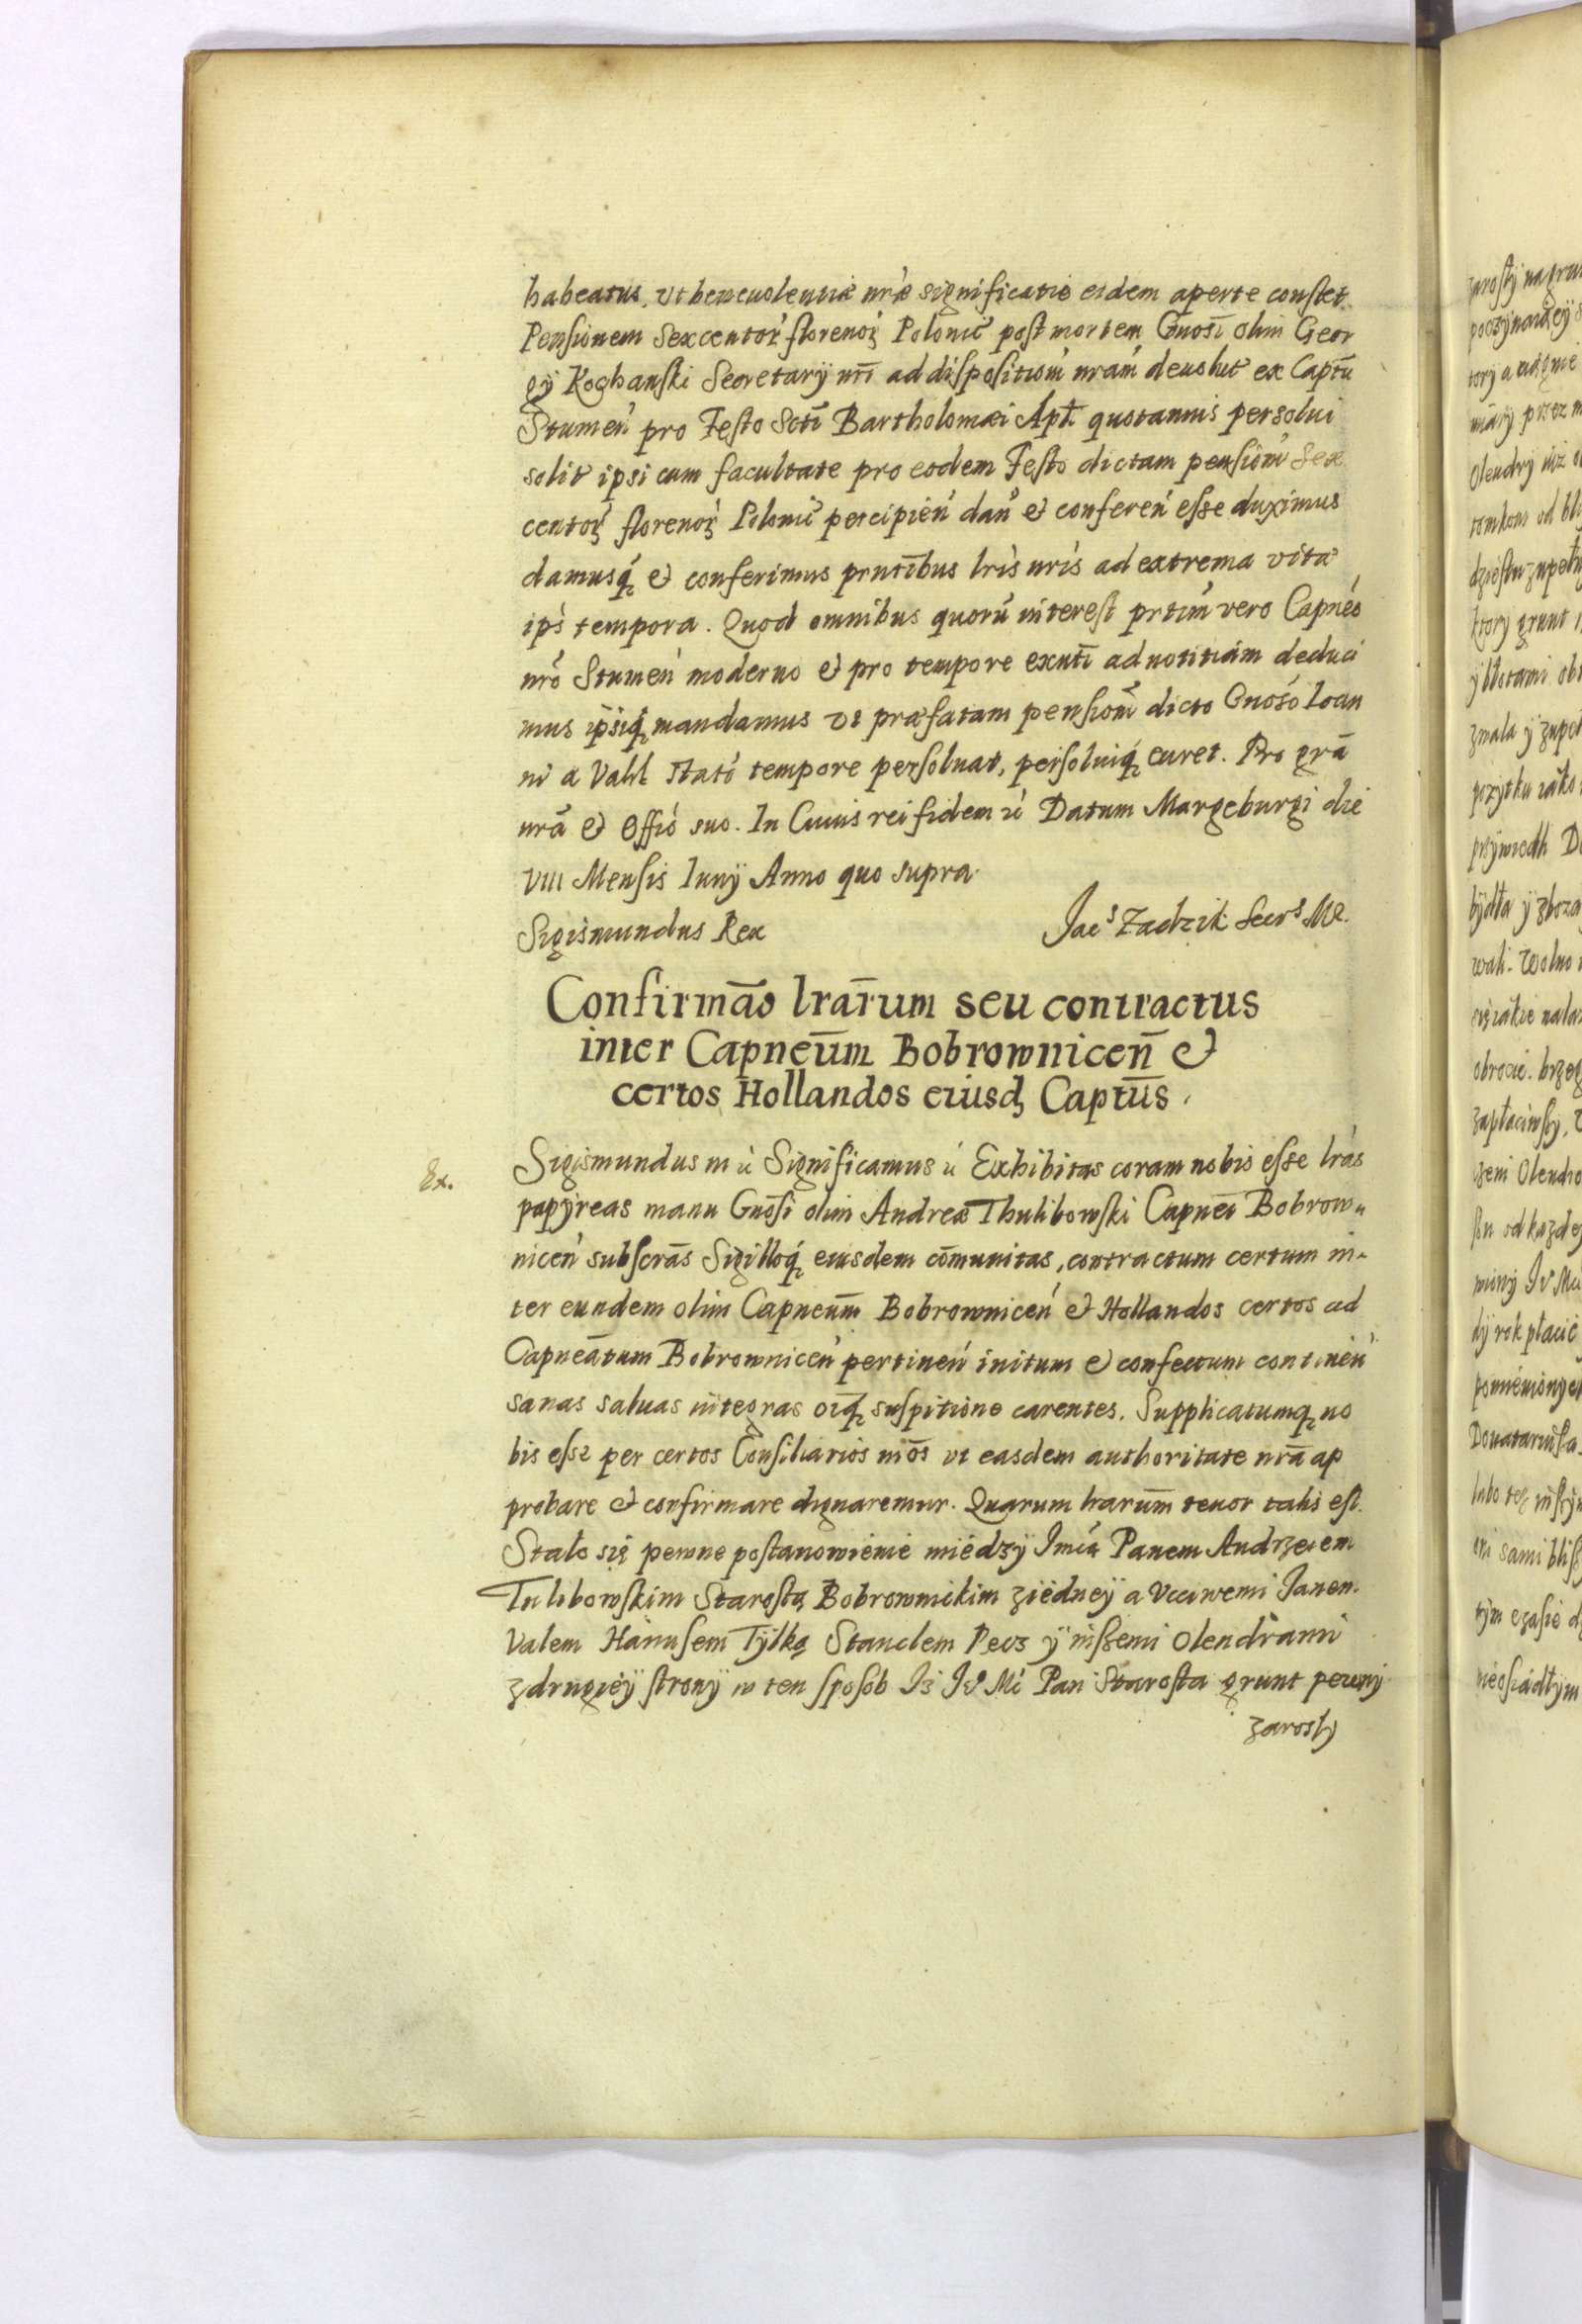 habeatur, vt beneuolentiæ nr̃æ significatio eidem aperte constet.
Pensionem Sexcentor̃ florenorꝫ Polonic̃ post mortem Gnosi olim Geor
gÿ Kochanski Secretarÿ nr̃i ad dispositiom̃ nram̃ deuolut̃ ex Captũ
Stumen̄ pro Festo Scti Bartholomæi Apł̃i quotannis persolui
solit̃ ipsi cum facultate pro eodem Festo dictam pensiom̃ Sex
centorꝫ florenor̃ Polonic̃ percipien̄ dan̄ et conferen̄ esse duximus
damusq́ꝫ et conferimus pr̃ntibus lr̃is nr̃is ad extrema vitæ
ips̃ tempora. Quod omnibus quorũ interest pr̃tim̃ vero Capneo
nr̃o Stumen̄ moderno et pro tempore exñti ad notitiam deduci
mus ipsiqꝫ mandamus vt præfatam pensiom̃ dicto Gnoso Ioan
ni a Vahl stato tempore persoluat, persoluiq́ꝫ curet. Pro grã
nrã et Offió suo. In Cuius rei fidem ć Datum Margeburgi die
VIII Mensis Iunÿ Anno quo supra.
Sigismundus Rex
Jacs Zadzik Secrs Mr.
Confirmão lrãrum seu contractus
inter Capneũm Bobrownicen̄ et
certos Hollandos eiusdꝫ Captũs.
Ex.
Sigismundus m ć Significamus ć Exhibitas coram nobis esse lrás
papÿreas manu Gnõsi olim Andreæ Thulibowski Capnei Bobrow
nicen̄ subscrãs Sigilloq́ꝫ eiusdem cõmunitas, contractum certum in-
ter eundem olim Capneũm Bobrownicen̄ et Hollandos certos ad
Capneãtum Bobrownicen̄ pertinen̄ initum et confectum continen̄
sanas saluas integras oĩqꝫ suspitione carentes. Supplicatumqꝫ no
bis esse per certos Consiliarios nr̃os vt easdem authoritate nrã ap
probare et confirmare dignaremur. Quarum lrarũm tenor talis est.
Stało się pewne postanowienie miedzÿ Jmcią Panem Andrzeiem
Tulibowskim Starostą Bobrownickim ziedneÿ a Vcciwemi Janem.
Valem Hanusem Tÿlką Stanclem Pecz ÿ inszemi Olendrami
zdrugieÿ stronÿ w ten sposob Iż Je Mć Pan Starosta grunt pewny
zarosły